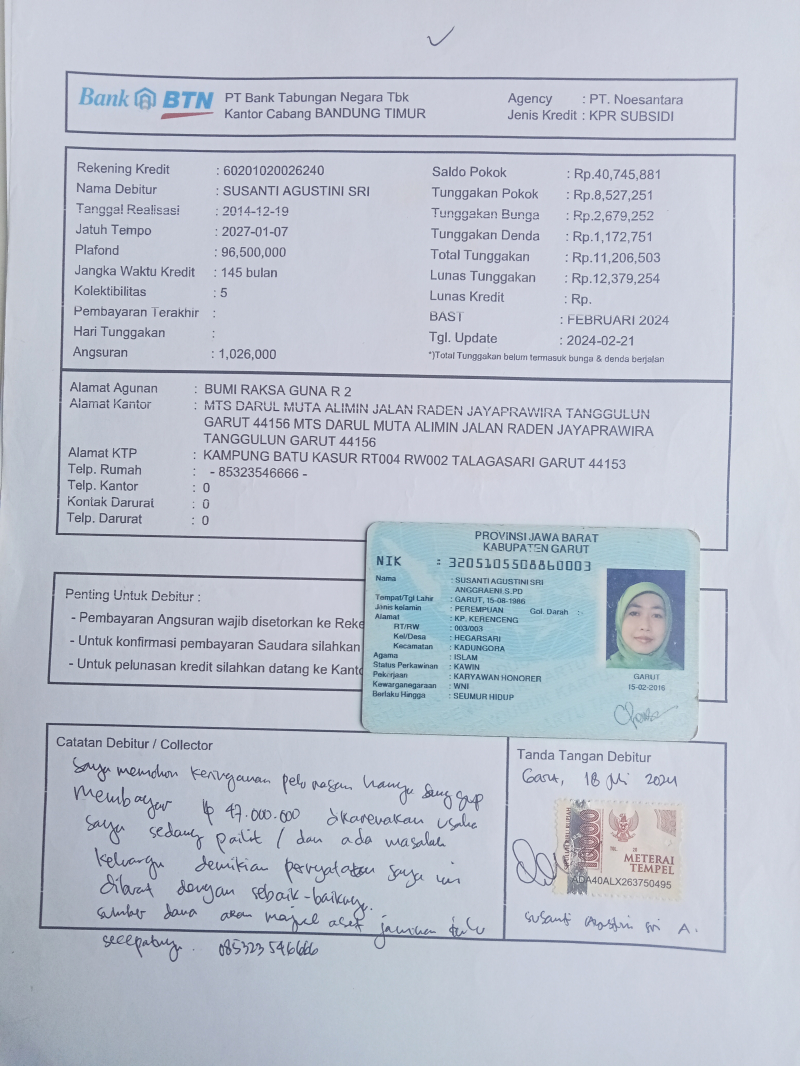 Bank BTN PT Bank Tabungan Negara Tbk
Kantor Cabang BANDUNG TIMUR
Agency : PT. Noesantara
Jenis Kredit : KPR SUBSIDI
Rekening Kredit : 60201020026240
Nama Debitur : SUSANTI AGUSTINI SRI
Tanggal Realisasi : 2014-12-19
Jatuh Tempo : 2027-01-07
Plafond : 96,500,000
Jangka Waktu Kredit : 145 bulan
Kolektibilitas : 5
Pembayaran Terakhir :
Hari Tunggakan :
Angsuran : 1,026,000
Saldo Pokok : Rp.40,745,881
Tunggakan Pokok : Rp.8,527,251
Tunggakan Bunga : Rp.2,679,252
Tunggakan Denda : Rp.1,172,751
Total Tunggakan : Rp.11,206,503
Lunas Tunggakan : Rp.12,379,254
Lunas Kredit : Rp.
BAST : FEBRUARI 2024
Tgl. Update : 2024-02-21
*)Total Tunggakan belum termasuk bunga & denda berjalan
Alamat Agunan : BUMI RAKSA GUNA R 2
Alamat Kantor : MTS DARUL MUTA ALIMIN JALAN RADEN JAYAPRAWIRA TANGGULUN
GARUT 44156 MTS DARUL MUTA ALIMIN JALAN RADEN JAYAPRAWIRA
TANGGULUN GARUT 44156
Alamat KTP : KAMPUNG BATU KASUR RT004 RW002 TALAGASARI GARUT 44153
Telp. Rumah : - 85323546666 -
Telp. Kantor : 0
Kontak Darurat : 0
Telp. Darurat : 0
Penting Untuk Debitur :
- Pembayaran Angsuran wajib disetorkan ke Reke
- Untuk konfirmasi pembayaran Saudara silahkan
- Untuk pelunasan kredit silahkan datang ke Kanto
PROVINSI JAWA BARAT
KABUPATEN GARUT
NIK : 3205105508860003
Nama : SUSANTI AGUSTINI SRI
ANGGRAENI.S.PD
Tempat/Tgl Lahir : GARUT, 15-08-1986
Jenis kelamin : PEREMPUAN Gol. Darah : -
Alamat : KP. KERENCENG
RT/RW : 003/003
Kel/Desa : HEGARSARI
Kecamatan : KADUNGORA
Agama : ISLAM
Status Perkawinan : KAWIN
Pekerjaan : KARYAWAN HONORER
Kewarganegaraan : WNI
Berlaku Hingga : SEUMUR HIDUP
GARUT
15-02-2016
Catatan Debitur / Collector
Saya memohon keringanan pelunasan hanya sanggup
membayar Rp 47.000.000 dikarenakan usaha
saya sedang pailit / dan ada masalah
keluarga demikian pernyataan saya ini
dibuat dengan sebaik-baiknya.
sumber dana akan aset jaminan
secepatnya. 085323546666
Tanda Tangan Debitur
Garut, 18 Juli 2024
10000
METERAI
TEMPEL
ADA40ALX263750495
Susanti Agustini Sri A.